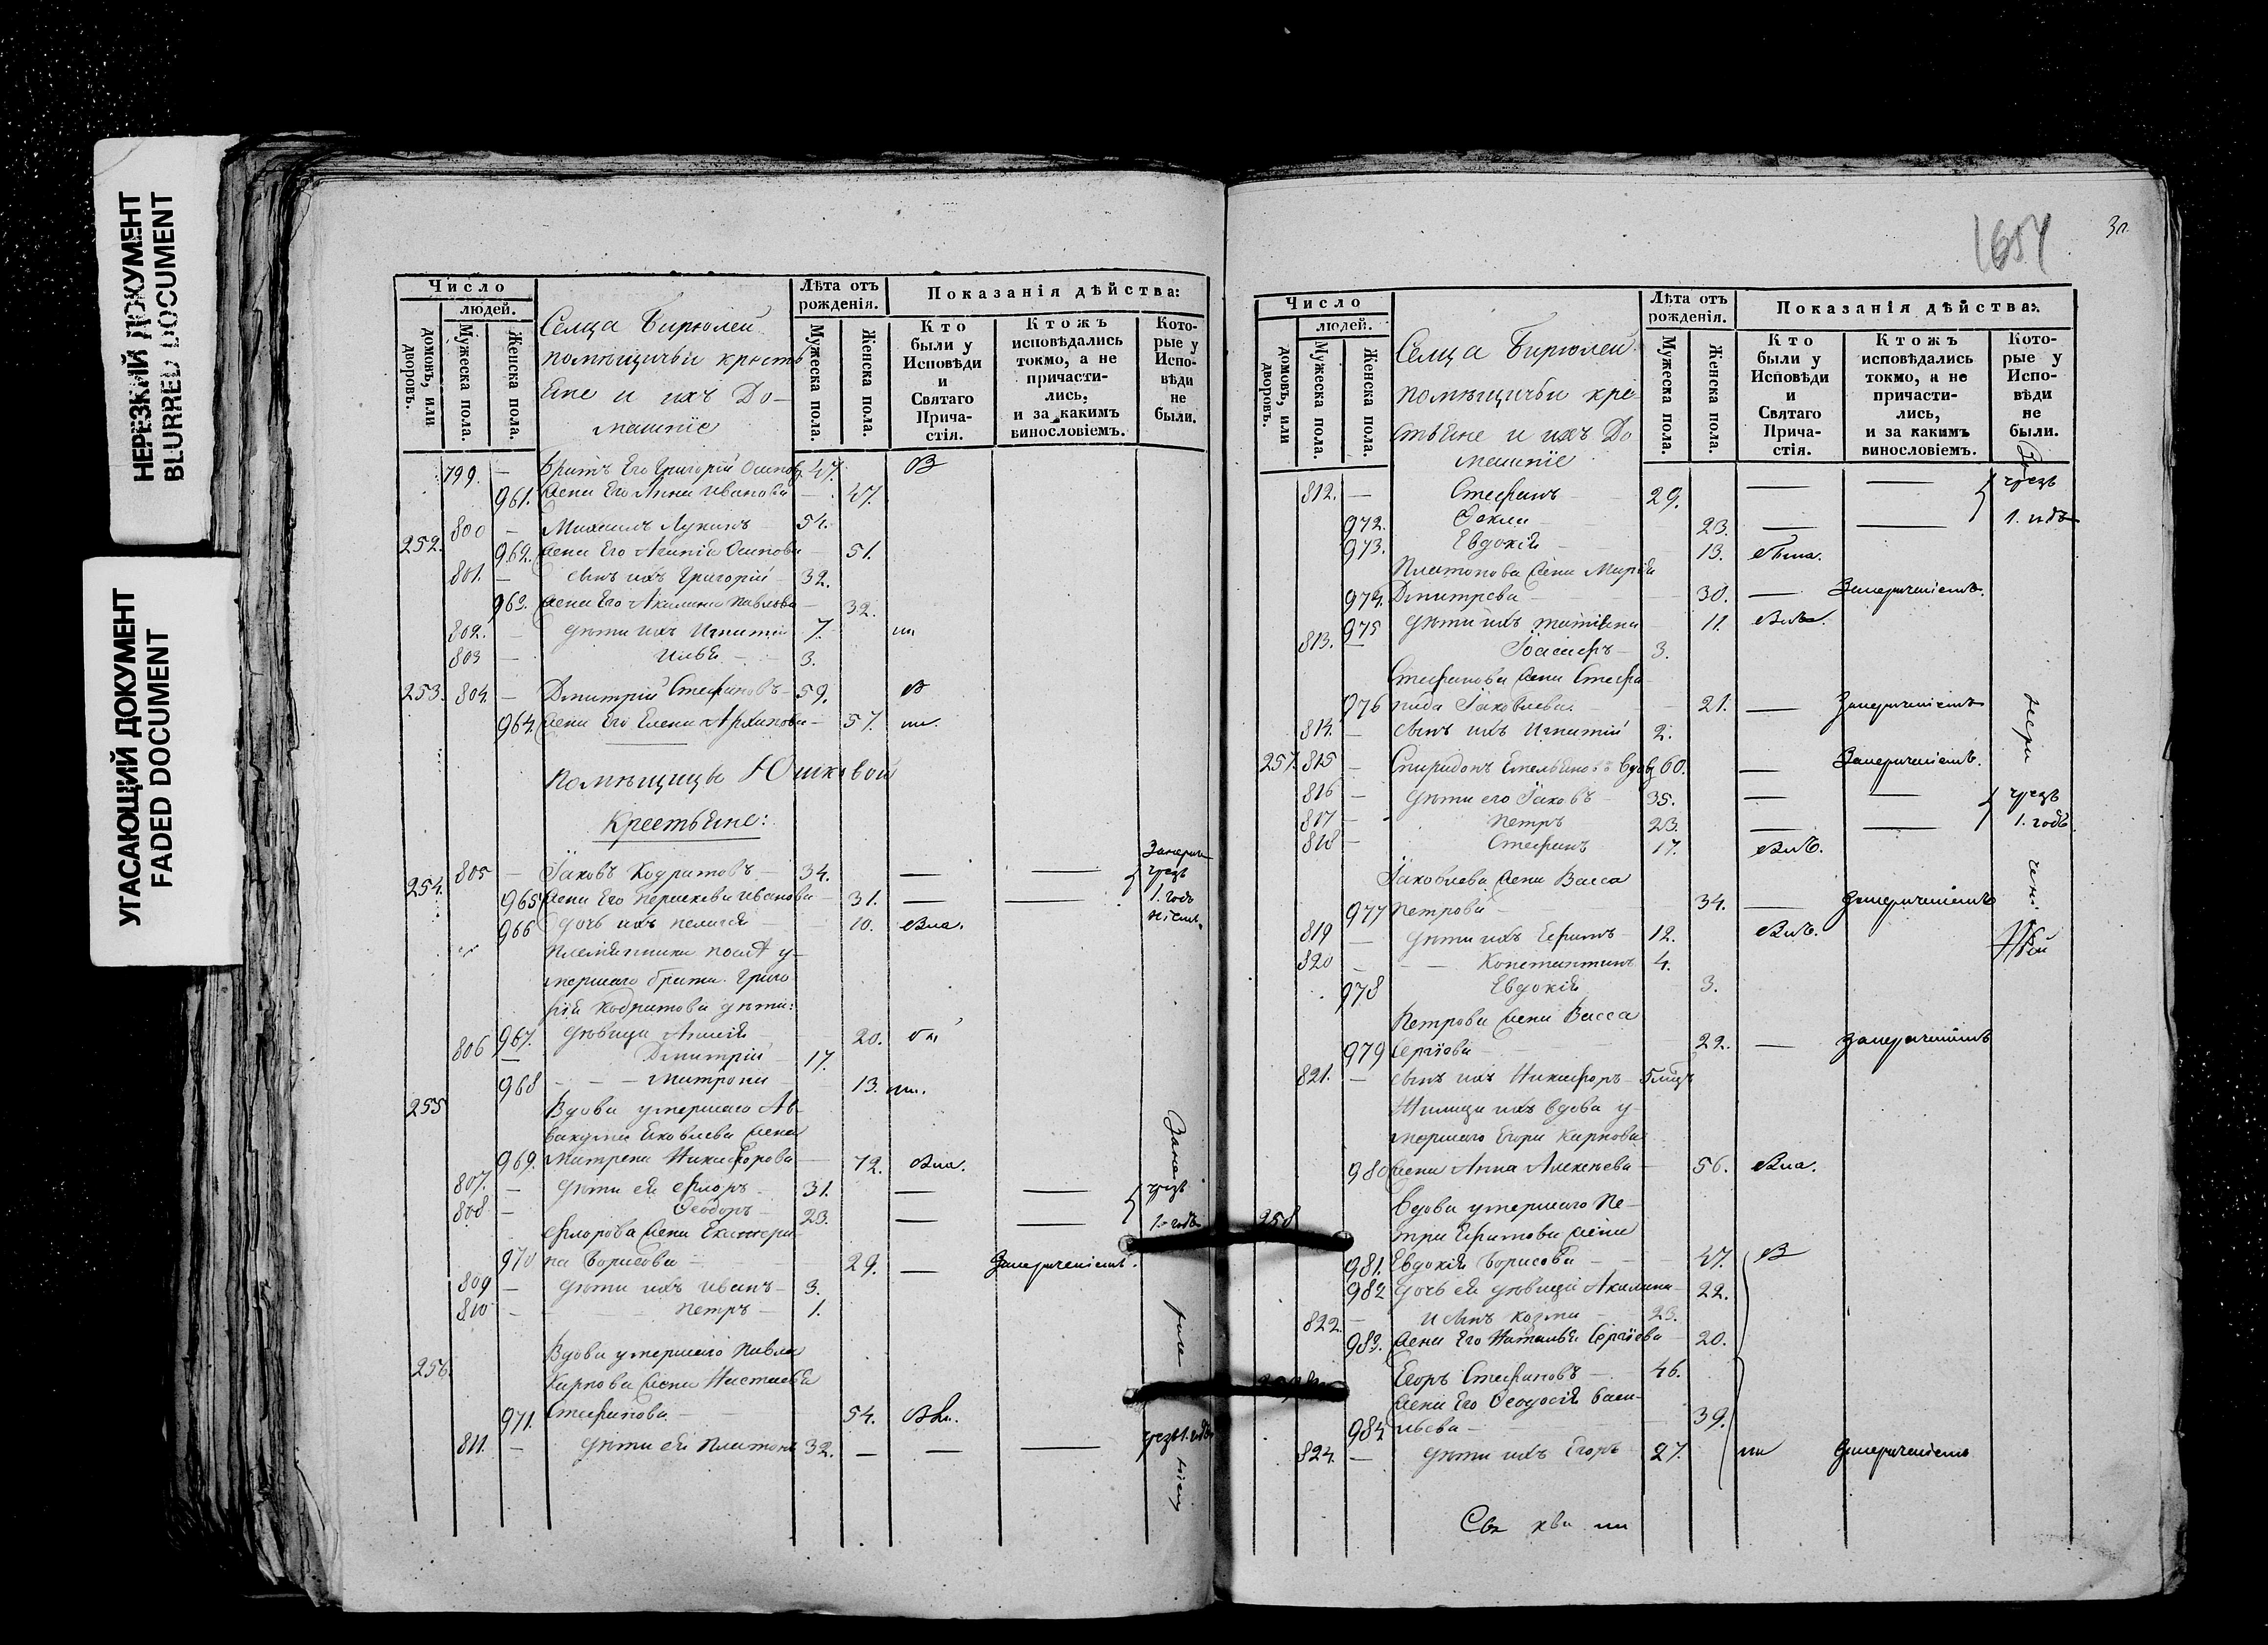 НЕРЕЗКИЙ ДОКУМЕНТ
BLURRED DOCUMENT
УГАСАЮЩИЙ ДОКУМЕНТ
FADED DOCUMENT
Число
людей.
домовъ, или дворовъ.
Мужеска пола.
Женска пола.
Селца Бирюлей
помѣщичьи кресть
яне и ихъ До-
машніе
Лѣта отъ рожденія.
Мужеска пола.
Женска пола.
Показанія дѣйства:
Кто были у Исповѣди и Святаго Причастія.
Ктожъ исповѣдались токмо, а не причастились, и за какимъ винословіемъ.
Которые у Исповѣди не были.
799. — Братъ Его Григорій Осиповъ 47. В
961. Жена Его Анна Иванова — 47.
252. 800 — Михаилъ Лукинъ — 54.
962. Жена Его Агапія Осипова — 51.
801. — сынъ ихъ Григорій — 32.
963. Жена Его Акилина Павлова — 32.
802. — дѣти ихъ Игнатій 7.
803 — Илья — 3.
253. 804. — Дмитрій Стефановъ — 59. В
964. Жена Его Елена Архипова — 57.
помѣщицы Юшковой
Крестьяне:
254. 805 — Іаковъ Кодратовъ — 34. — —
чрезъ
965 Жена Его Параскева Иванова — 31. — —
1. годъ
966 дочь ихъ Пелагея 10.
Племянники послѣ у-
мершаго брата Григо
рія Кодратова дѣти:
967. дѣвица Анисія — 20.
806 — Дмитрій — 17.
968 — — Матрона 13.
255 Вдова умершаго Ав-
вакума Яковлева Жена
969. Матрена Никифорова — 72.
807. — дѣти ея Флоръ — 31. — —
чрезъ
808 — Ѳеодоръ — 23. — —
1. годъ
Флорова Жена Екатери-
970 на Борисова — 29. —
809 — дѣти ихъ Иванъ — 3.
810 — Петръ — 1.
Вдова умершаго Павла
256. Карпова Жена Настасья
971. Стефанова — 54.
811. — дѣти ея Платонъ 32. — — —
чрезъ 1. годъ
1654
Число
людей.
домовъ, или дворовъ.
Мужеска пола.
Женска пола.
Селца Бирюлей
помѣщичьи кре
стьяне и ихъ До
машніе
Лѣта отъ рожденія.
Мужеска пола.
Женска пола.
Показанія дѣйства:
Кто были у Исповѣди и Святаго Причастія.
Ктожъ исповѣдались токмо, а не причастились, и за какимъ винословіемъ.
Которые у Исповѣди не были.
812. — Стефанъ — 29. — —
чрезъ
972. Ѳекла — 23. — —
1. годъ
973. Евдокія 13.
Платонова Жена Марія
974. Дмитрева — 30. —
975 дѣти ихъ Татіяна 11.
813. — Іосифъ — 3.
Стефанова Жена Стефа
976 нида Іаковлева — 21. —
814. — сынъ ихъ Игнатій 2.
257. 815 — Спиридонъ Емельяновъ вдовъ 60. —
816 — дѣти его Іаковъ — 35. — —
чрезъ
817 — Петръ 23. — —
1. годъ
818 — Стефанъ 17.
Іаковлева Жена Васса
977 Петрова — 34. —
819 — дѣти ихъ Ефимъ — 12.
820 — — Константинъ 4.
978 Евдокія 3.
Петрова Жена Васса
979 Сергіева — 22. —
821. — сынъ ихъ Никифоръ — 5 мѣц
вдова у-
мершаго Егора Карпова
980 Жена Анна Алексѣева — 56.
258 Вдова умершаго Пе-
тра Ефимова Жена
981. Евдокія Борисова — 47. В
982 дочь ея дѣвица Акилина — 22.
822. — и сынъ Козма — 23.
983. Жена Его Наталья Сергіева — 20.
Егоръ Стефановъ — 46.
Жена Его Ѳеодосія Васи-
984 льева — 39.
824. — дѣти ихъ Егоръ 27.